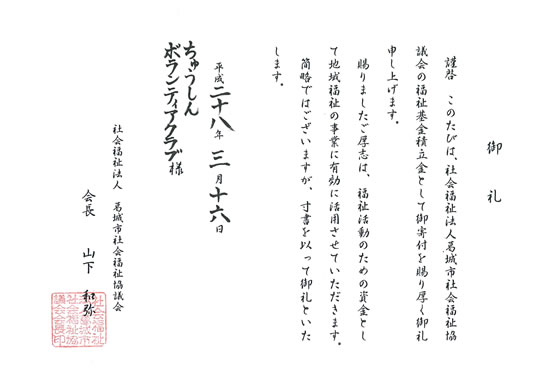 御礼
謹啓　このたびは、社会福祉法人葛城市社会福祉協
議会の福祉基金積立金として御寄付を賜り厚く御礼
申し上げます。
賜りましたご厚志は、福祉活動のための資金とし
て地域福祉の事業に有効に活用させていただきます。
簡略ではございますが、寸書を以って御礼といた
します。
平成二十八年三月十六日
ちゅうしん
ボランティアクラブ様
社会福祉法人　葛城市社会福祉協議会
会長　山下　和弥